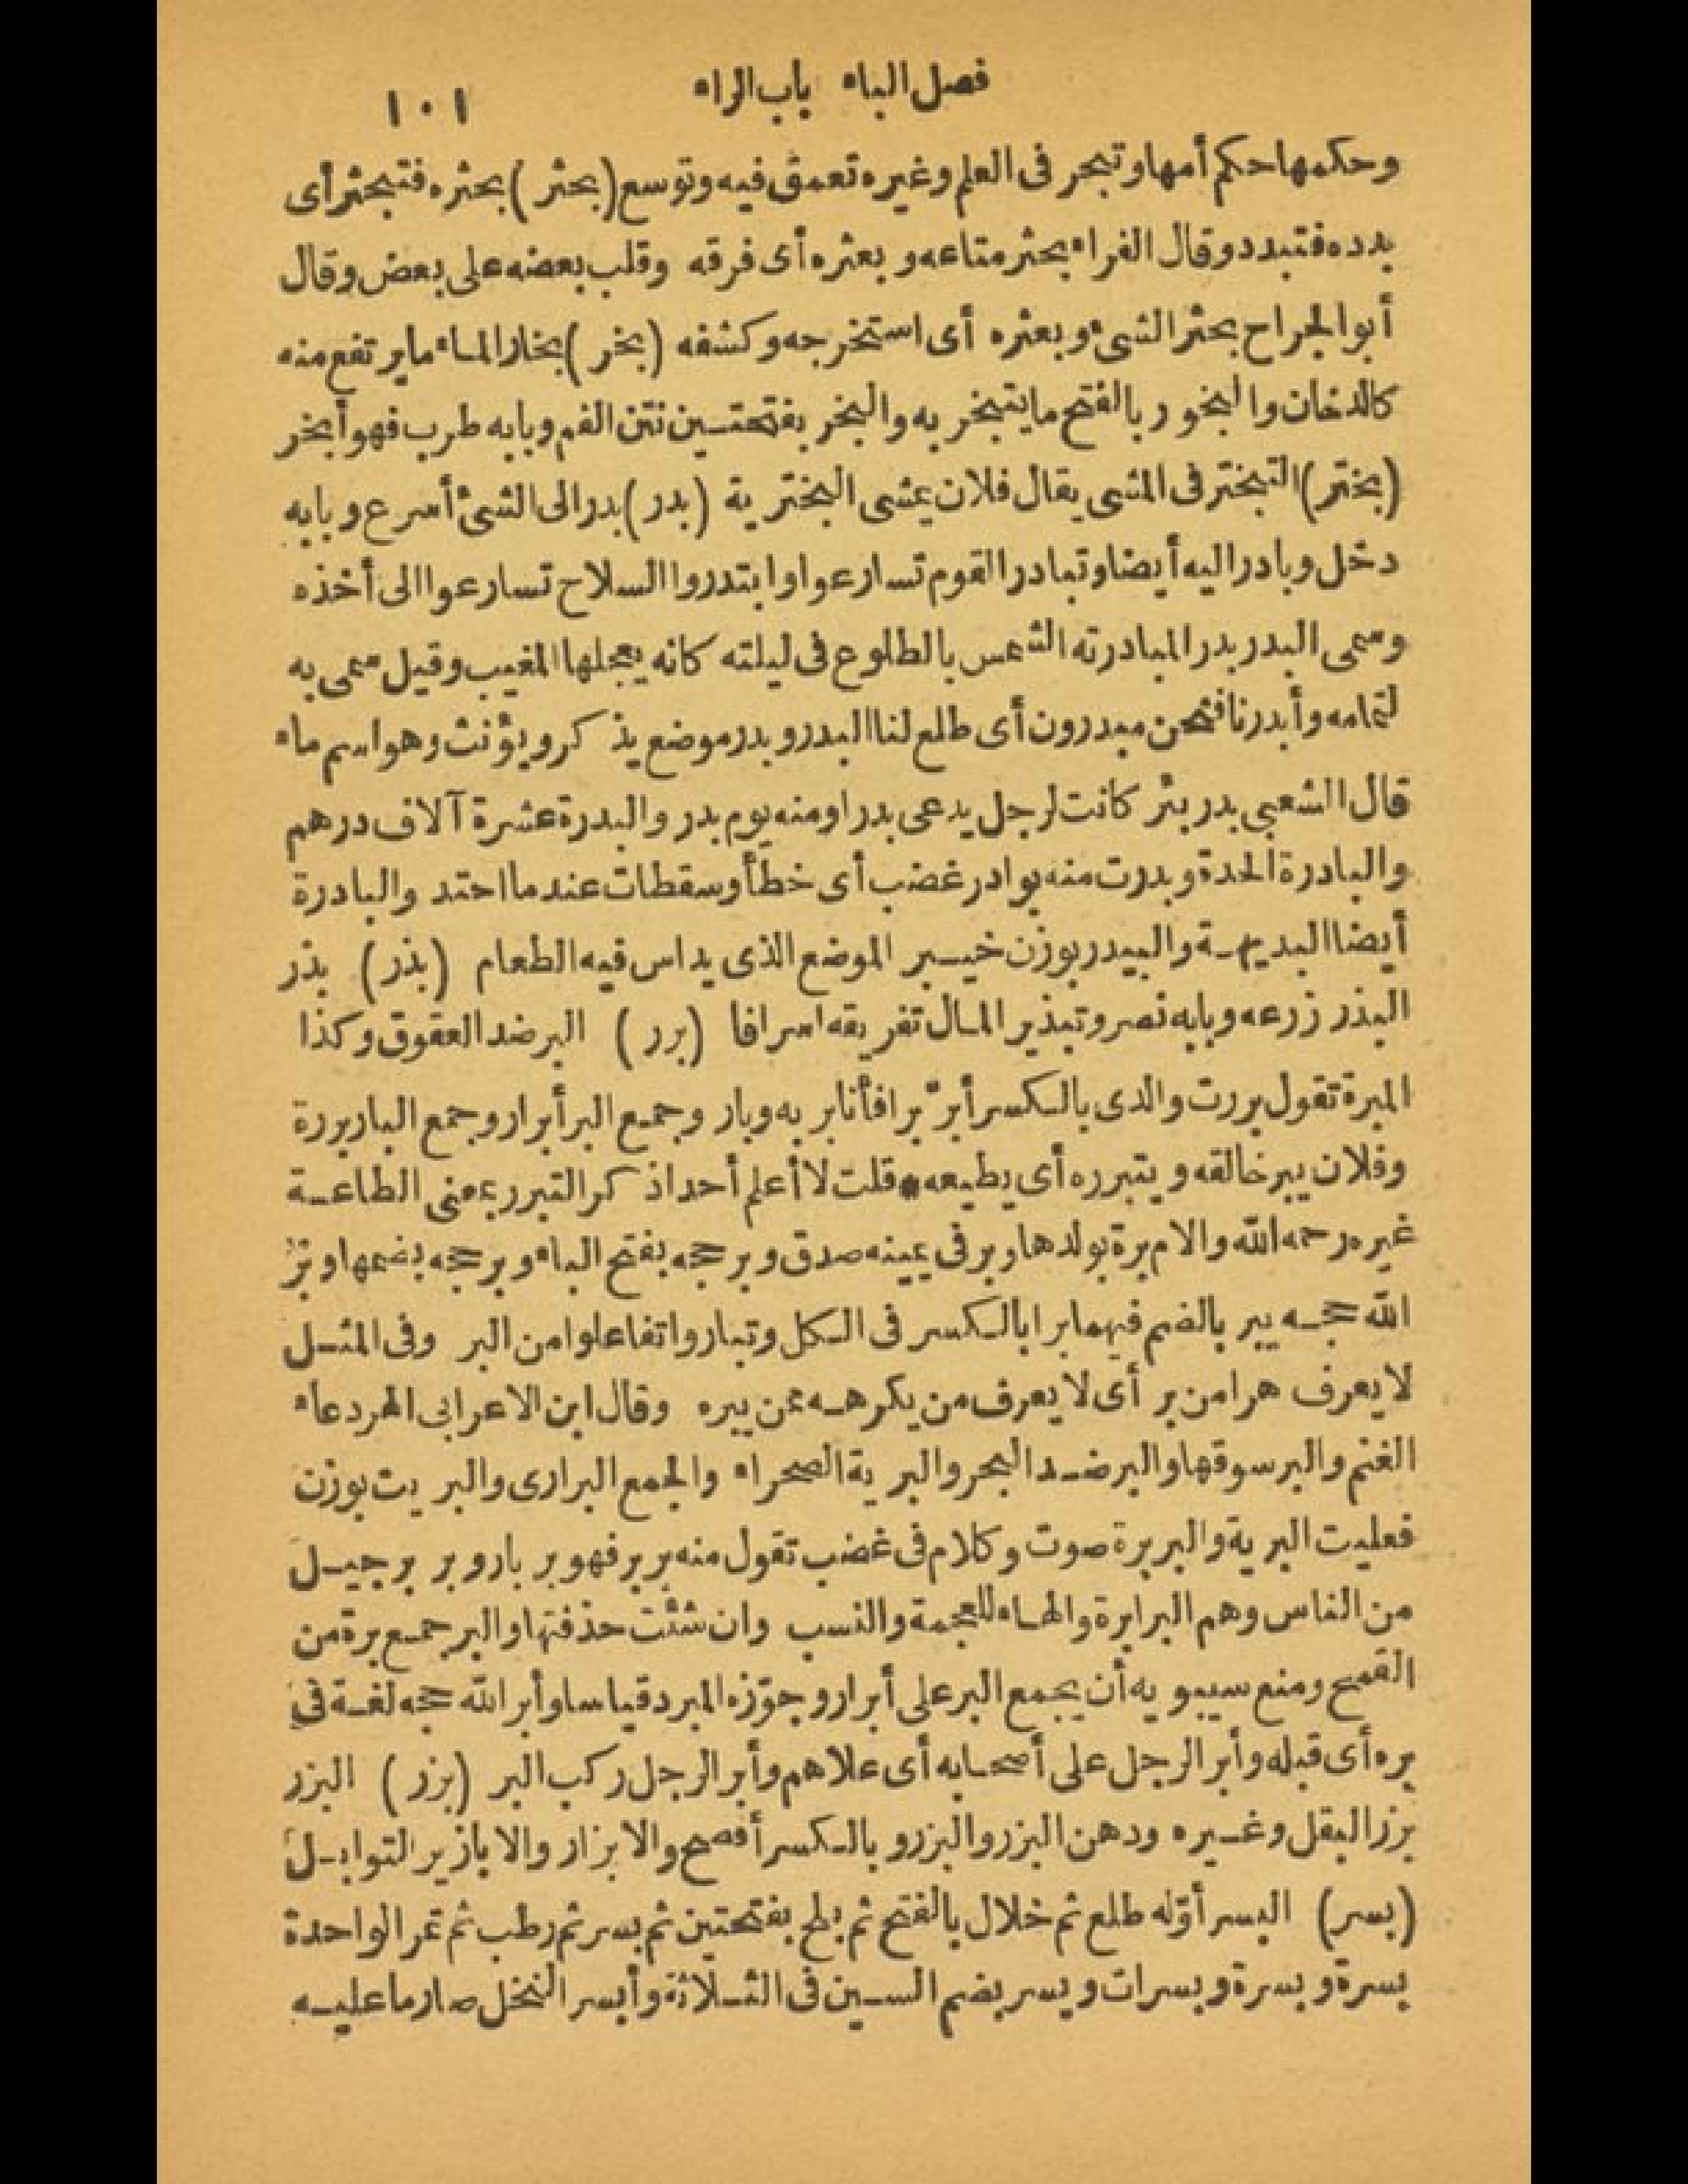 فصل الباء باب الراء ١٠١
وحكمها حكم أمها وتبحر فى العلم وغيره تعمق فيه وتوسع (بحثر) بحثره فتبحثر أى
بدده فتبدد وقال الفراء بحثر متاعه وبعثره أى فرقه وقلب بعضه على بعض وقال
أبو الجراح بحثر الشىء وبعثره أى استخرجه وكشفه (بخر) بخار الماء ما يرتفع منه
كالدخان والبخور بالفتح ما يتبخر به والبخر بفتحتين نتن الفم وبابه طرب فهو أبخر
(بختر) التبختر فى المشى يقال فلان يمشى البخترية (بدر) بدر الى الشىء أسرع وبابه
دخل وبادر اليه أيضا وتبادر القوم تسارعوا وابتدروا السلاح تسارعوا الى أخذه
وسمى البدر بدرا لمبادرته الشمس بالطلوع فى ليلته كانه يعجلها المغيب وقيل سمى به
لتمامه وأبدرنا فنحن مبدرون أى طلع لنا البدر وبدر موضع يذكر ويؤنث وهو اسم ماء
قال الشعبى بدر بئر كانت لرجل يدعى بدرا ومنه يوم بدر والبدرة عشرة آلاف درهم
والبادرة الحدة وبدرت منه بوادر غضب أى خطأ وسقطات عند ما احتد والبادرة
أيضا البديهة والبيدر بوزن خيبر الموضع الذى يداس فيه الطعام (بذر) بذر
البذر زرعه وبابه نصر وتبذير المال تفريقه اسرافا (برر) البر ضد العقوق وكذا
المبرة تقول بررت والدى بالكسر أبرّ برا فأنا بر به وبار وجمع البر أبرار وجمع البار بررة
وفلان يبر خالقه ويتبرره أى يطيعه * قلت لا أعلم أحدا ذكر التبرر بمعنى الطاعة
غيره رحمه الله والام برة بولدها وبر فى يمينه صدق وبر حجه بفتح الباء وبر حجه بضمها وبرّ
الله حجه يبر بالضم فيهما برا بالكسر فى الكل وتباروا تفاعلوا من البر وفى المثل
لا يعرف هرا من بر أى لا يعرف من يكرهه ممن يبره وقال ابن الاعرابى الهر دعاء
الغنم والبر سوقها والبر ضد البحر والبرية الصحراء والجمع البرارى والبريت بوزن
فعليت البرية والبربرة صوت وكلام فى غضب تقول منه بربر فهو بربار وبربر جيل
من الناس وهم البرابرة والهاء للعجمة والنسب وان شئت حذفتها والبر جمع برة من
القمح ومنع سيبويه أن يجمع البر على أبرار وجوّزه المبرد قياسا وأبر الله حجه لغة فى
بره أى قبله وأبر الرجل على أصحابه أى علاهم وأبر الرجل ركب البر (بزر) البزر
بزر البقل وغيره ودهن البزر والبزر وبالكسر أفصح والابزار والابازير التوابل
(بسر) البسر أوّله طلع ثم خلال بالفتح ثم بلح بفتحتين ثم بسر ثم رطب ثم تمر الواحدة
بسرة وبسرة وبسرات وبسر بضم السين فى الثلاثة وأبسر النخل صار ما عليه